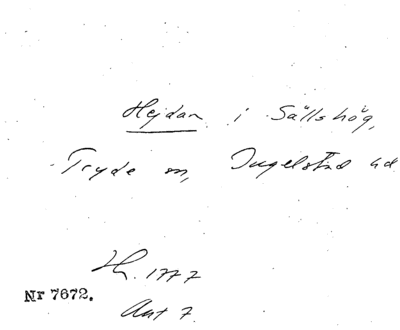 Hejdan i Sällshög,
Tryde sn, Ingelstad hd
H. 1777
Nr 7672.
Ant 7